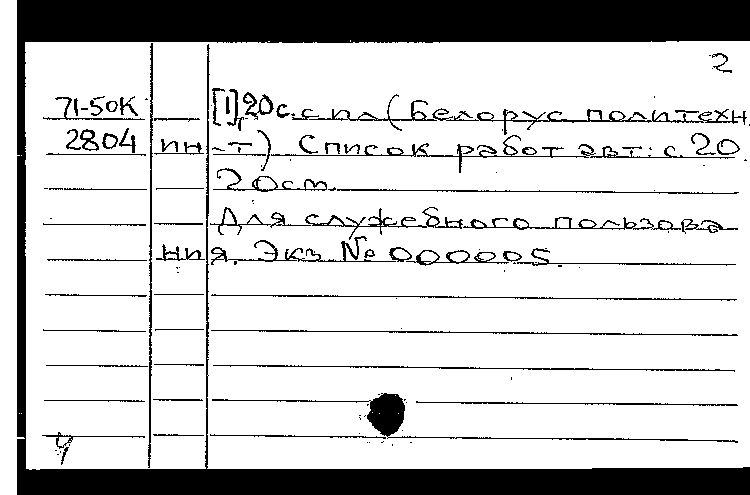 2
71-50К [1]20с. с пл (Белорус политехн.
2804 ин-т) Список работ авт: с. 20.
20см.
Для служебного пользова
ния. Экз № 000005.